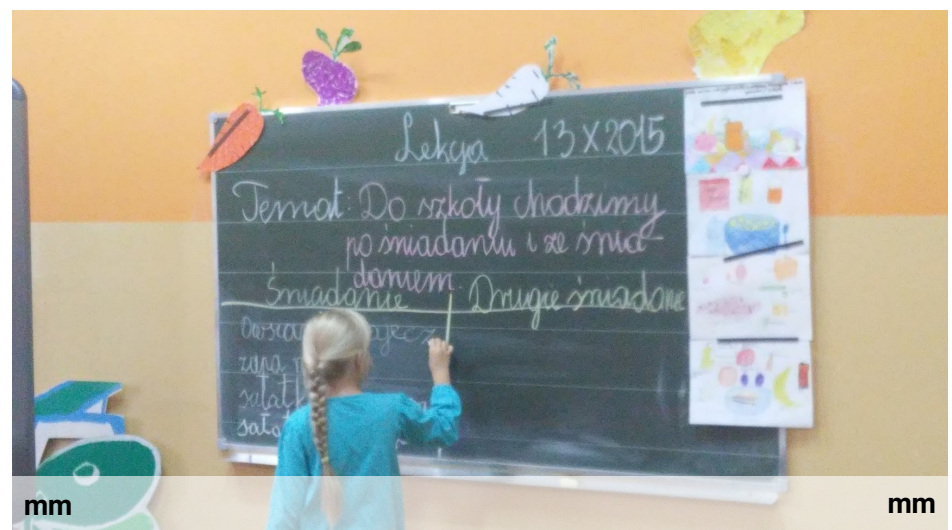 Lekcja 13 X 2015
Temat: Do szkoły chodzimy
po śniadaniu i ze śnia-
daniem.
Śniadanie Drugie śniadanie
zupa
sałat
mm mm